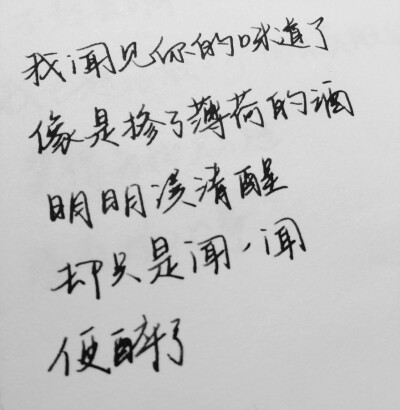 我闻见你的味道了
像是掺了薄荷的酒
明明没清醒
却只是闻一闻
便醉了